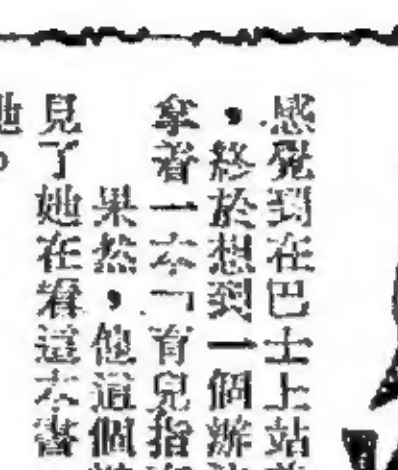 感覺到在巴士上站
，終於想到一個辦
拿着一本「育兒指
果然，他這個
見了她在看這本書
她。